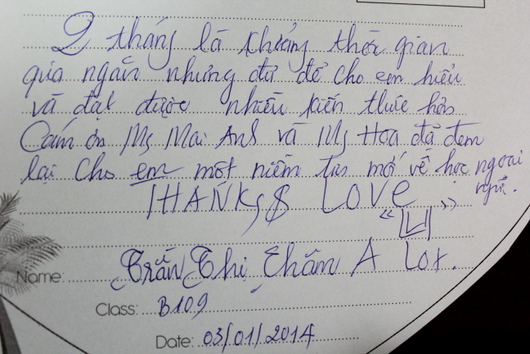 2 tháng là khoảng thời gian
quá ngắn nhưng đủ để cho em hiểu
và đạt được nhiều kiến thức hơn
Cám ơn Ms Mai Anh và Ms Hoa đã đem
lại cho em một niềm tin mới về học ngoại
ngữ.
THANKS & LOVE
Name: Trần Thị Thắm A Lot.
Class: B109
Date: 03/01/2014